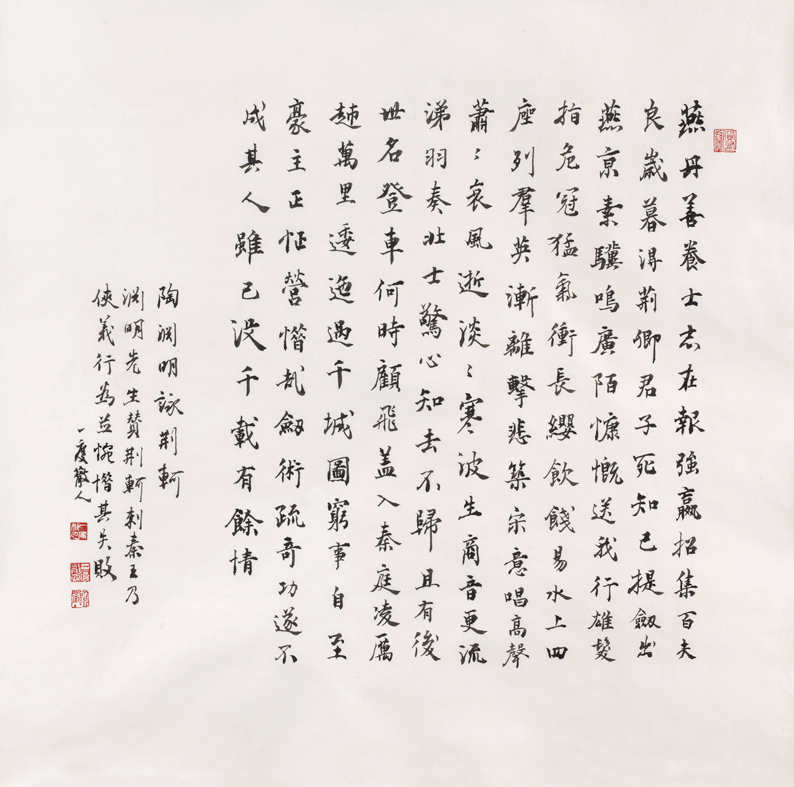 燕丹善養士志在報強嬴招集百夫
良歲暮得荊卿君子死知己提劔出
燕京素驥鳴廣陌慷慨送我行雄髮
指危冠猛氣衝長纓飲餞易水上四
座列羣英漸離擊悲築宋意唱高聲
蕭〻哀風逝淡〻寒波生商音更流
涕羽奏壯士驚心知去不歸且有後
世名登車何時顧飛盖入秦庭凌厲
越萬里逶迤過千城圖窮事自至
豪主正怔營惜哉劔術疏奇功遂不
成其人雖已没千載有餘情
陶渊明詠荊軻
渊明先生贊荊軻刺秦王乃
俠義行為並惋惜其失敗
一度人